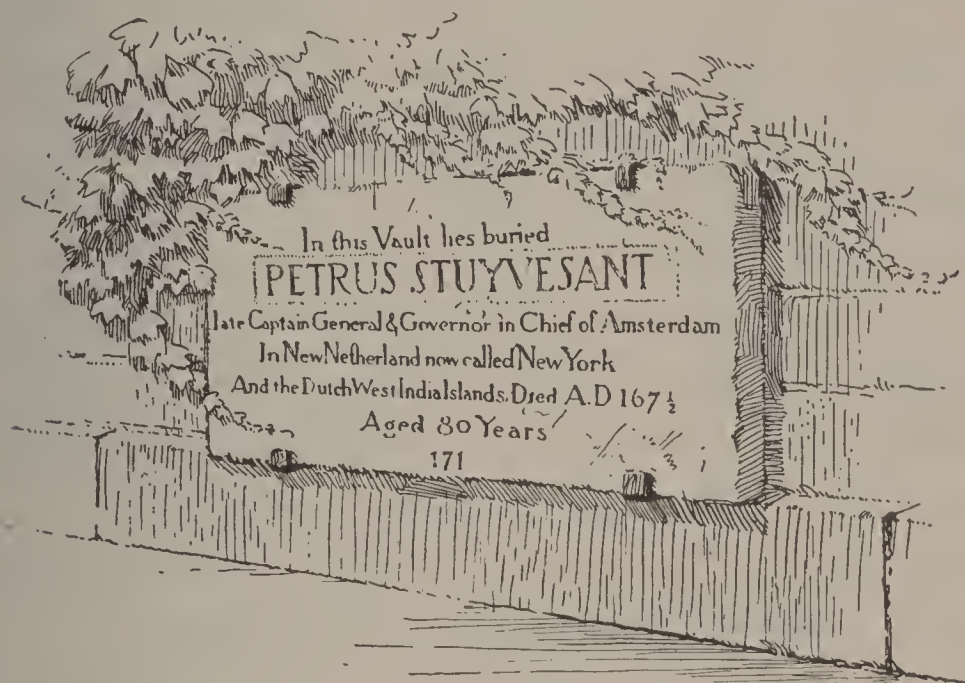 In this Vault lies buried
PETRUS STUYVESANT
late Captain General & Governor in Chief of Amsterdam
In New Netherland now called New York
And the Dutch West India Islands. Died A.D 167½
Aged 80 Years
171